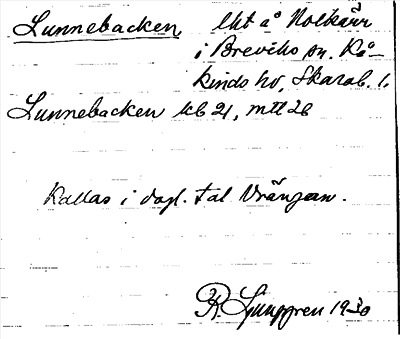 Lunnebacken lht å Nolkärr
i Breviks sn. Kå-
kinds hd, Skarab. l.
Lunnebacken kb 21, mtl 26
Kallas i dagl. tal Vrången.
R. Ljunggren 1930